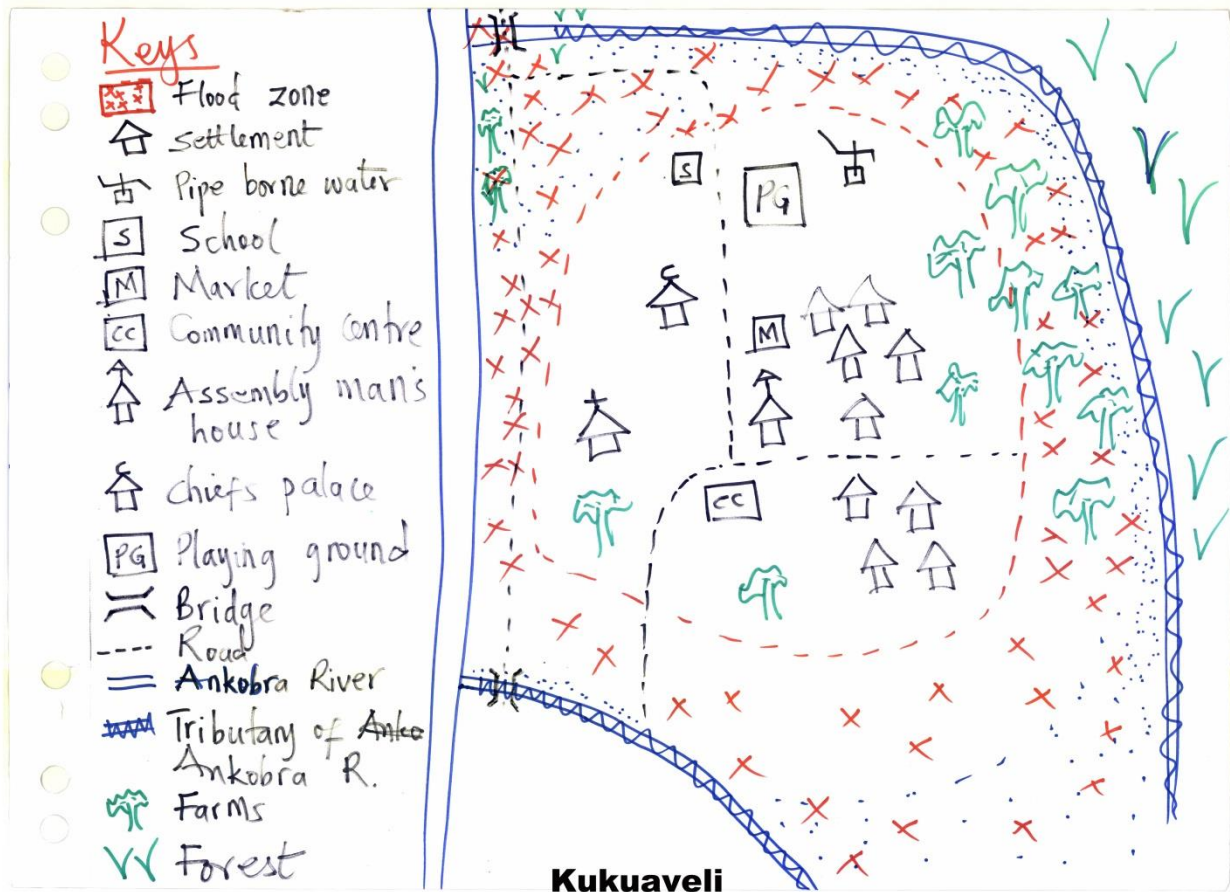 Keys
Flood zone
settlement
Pipe borne water
S School
M Market
CC Community Centre
Assembly man's
house
chiefs palace
PG Playing ground
Bridge
Road
Ankobra River
Tributary of Anko
Ankobra R.
Farms
Forest
S
PG
M
CC
Kukuaveli